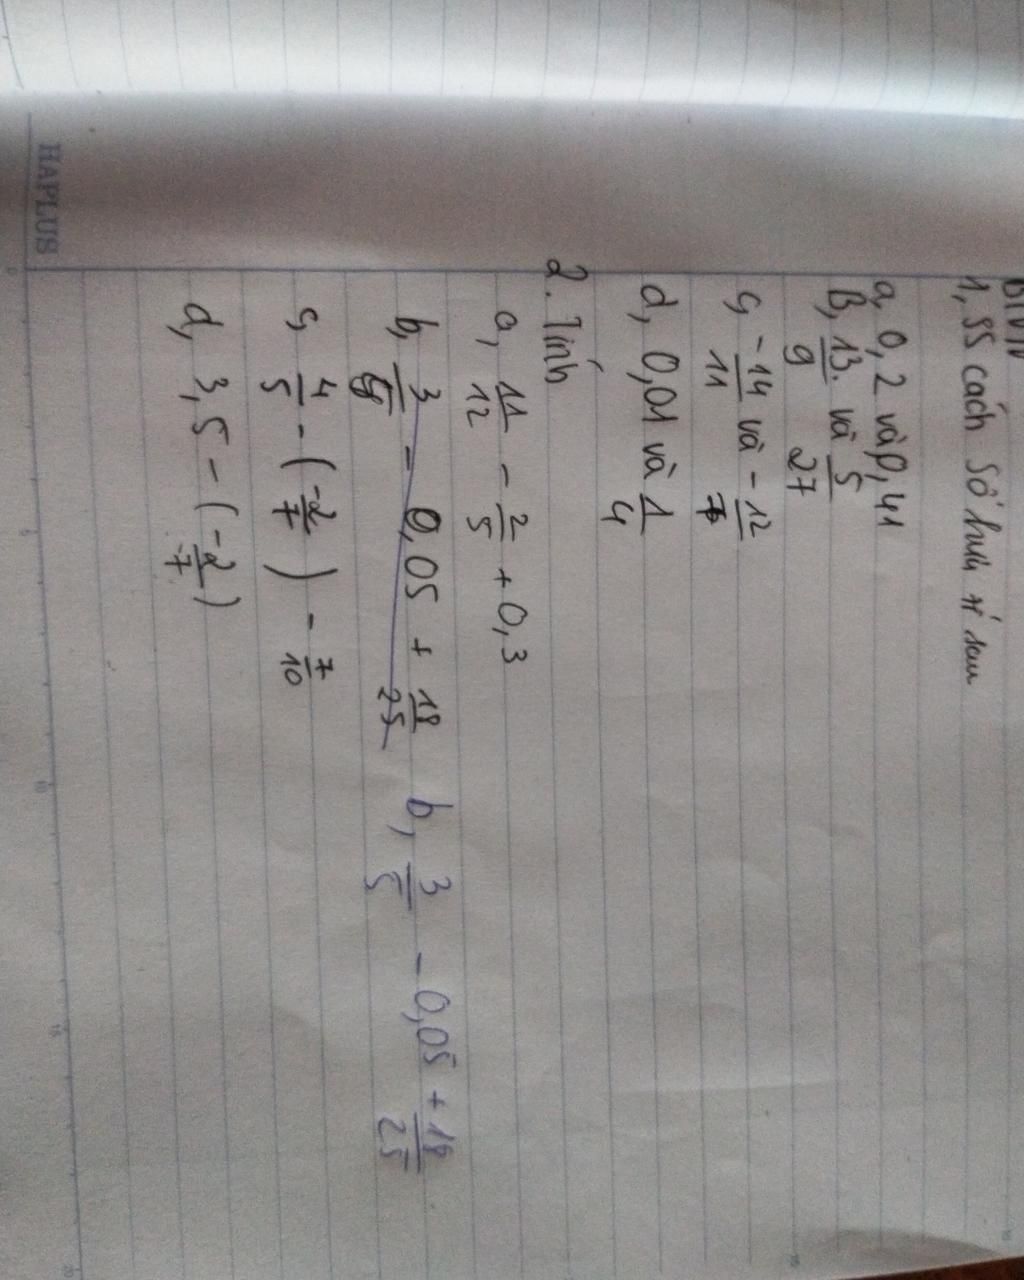 BTVN
1, SS các số hữu tỉ sau
a, 0,2 và 0,41
B, 13/9 và 5/27
c, -14/11 và -12/7
d, 0,01 và 1/4
2. Tính
a, 11/12 - 2/5 + 0,3
b, 3/ - 0,05 + 18/25 b, 3/5 - 0,05 + 18/25
c, 4/5 - (-2/7) - 7/10
d, 3,5 - (-2/7)
HAPLUS